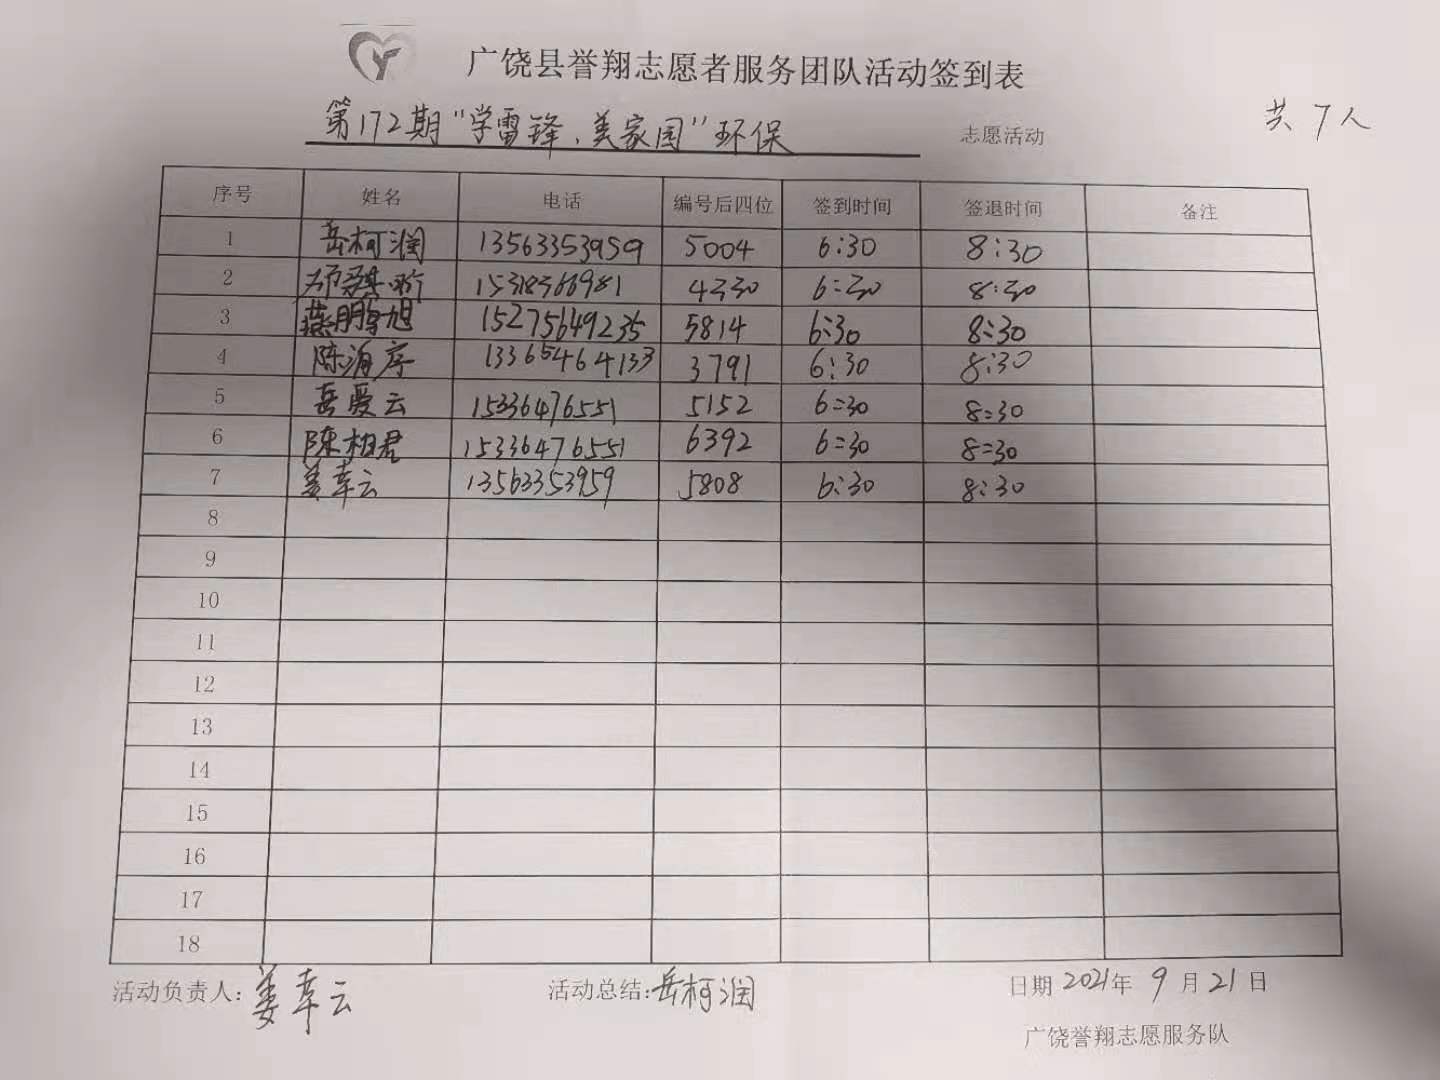 广饶县誉翔志愿者服务团队活动签到表
第172期“学雷锋、美家园”环保 志愿活动 共7人
序号 姓名 电话 编号后四位 签到时间 签退时间 备注
1 岳柯润 13563353959 5004 6:30 8:30
2 15318366981 4330 6:30 8:30
3 燕鹏旭 15275649235 5814 6:30 8:30
4 陈海 13365464133 3791 6:30 8:30
5 岳爱云 15336476551 5152 6:30 8:30
6 陈相君 15336476551 6392 6:30 8:30
7 姜幸云 13563353959 5808 6:30 8:30
8
9
10
11
12
13
14
15
16
17
18
活动负责人:姜幸云 活动总结:岳柯润 日期2021年9月21日
广饶誉翔志愿服务队